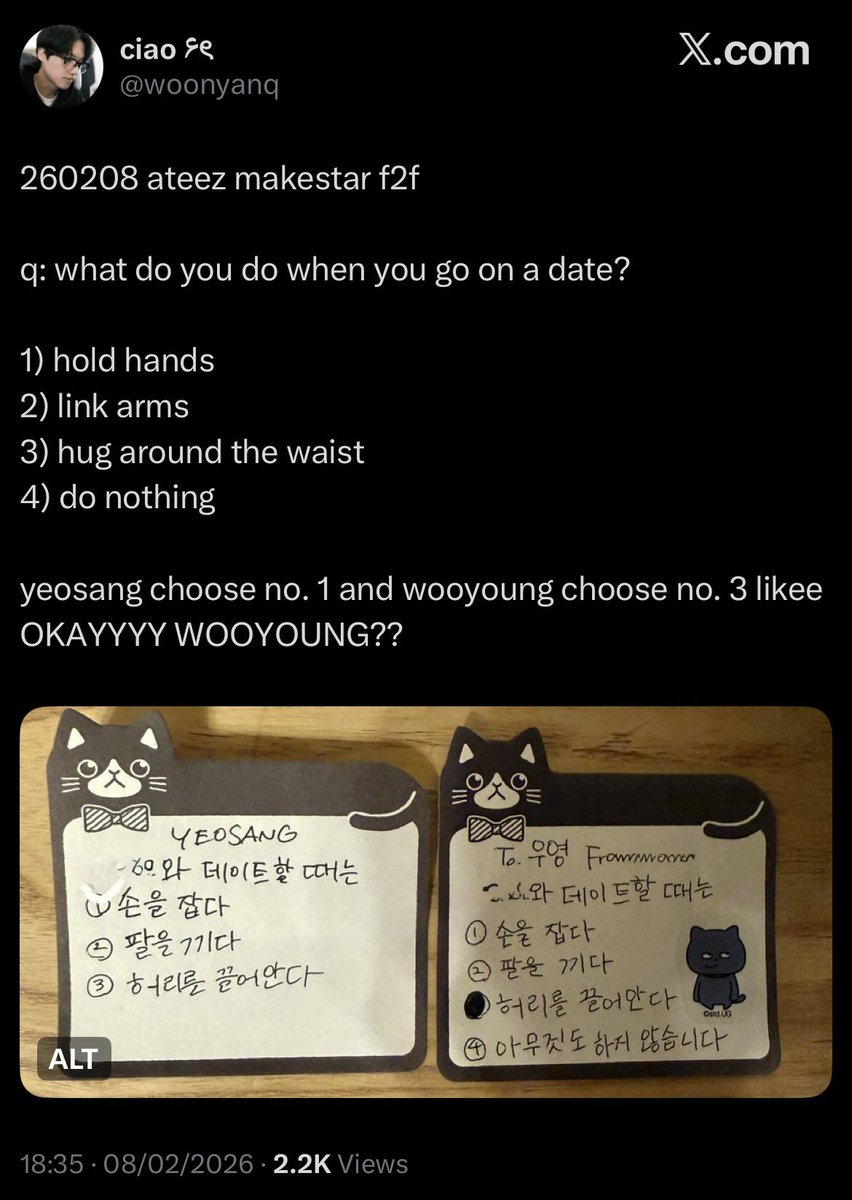 ciao
@woonyanq
X.com
260208 ateez makestar f2f
q: what do you do when you go on a date?
1) hold hands
2) link arms
3) hug around the waist
4) do nothing
yeosang choose no. 1 and wooyoung choose no. 3 likee
OKAYYYY WOOYOUNG??
YEOSANG
와 데이트할 때는
① 손을 잡다
② 팔을 끼다
③ 허리를 끌어안다
To. 우영 From
와 데이트할 때는
① 손을 잡다
② 팔을 끼다
허리를 끌어안다
④ 아무것도 하지 않습니다
©std.UG
ALT
18:35 · 08/02/2026 · 2.2K Views